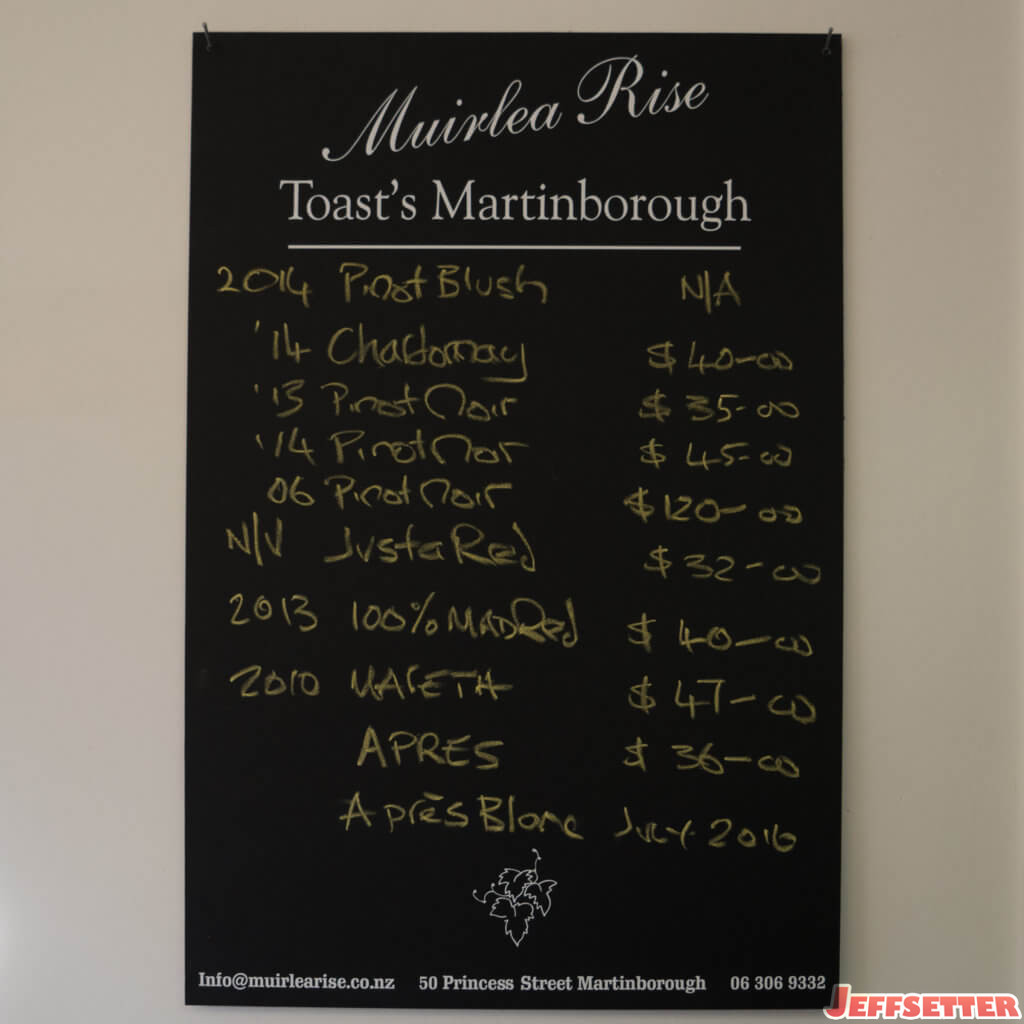 Muirlea Rise
Toast's Martinborough
2014 Pinot Blush N/A
'14 Chardonnay $40-00
'13 Pinot Noir $35-00
'14 Pinot Noir $45-00
06 Pinot Noir $120-00
N/V Justa Red $32-00
2013 100% MAD Red $40-00
2010 $47-00
APRES $36-00
Après Blanc July 2016
Info@muirlearise.co.nz 50 Princess Street Martinborough 06 306 9332
JEFFSETTER